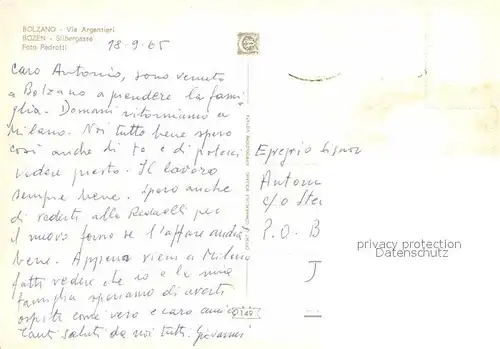 BOLZANO - Via Argentieri
BOZEN - Silbergasse
Foto Pedrotti
18.9.65
Caro Antonio, sono venuto
a Bolzano a prendere la fami
glia. Domani ritorniamo a
Milano. Noi tutto bene spero
così anche di te e di poterci
vedere presto. Il lavoro
sempre bene. Spero anche
di vederti alla per
il nuovo forno se l'affare andrà
bene. Appena vieni a Milano
fatti vedere che io e la mia
famiglia speriamo di averti
ospite come vero e caro amico
Tanti saluti da noi tutti. Giovanni
Egregio Signor
Anton
c/o Ste
P.O. B
J
privacy protection
Dansatelier.com
149